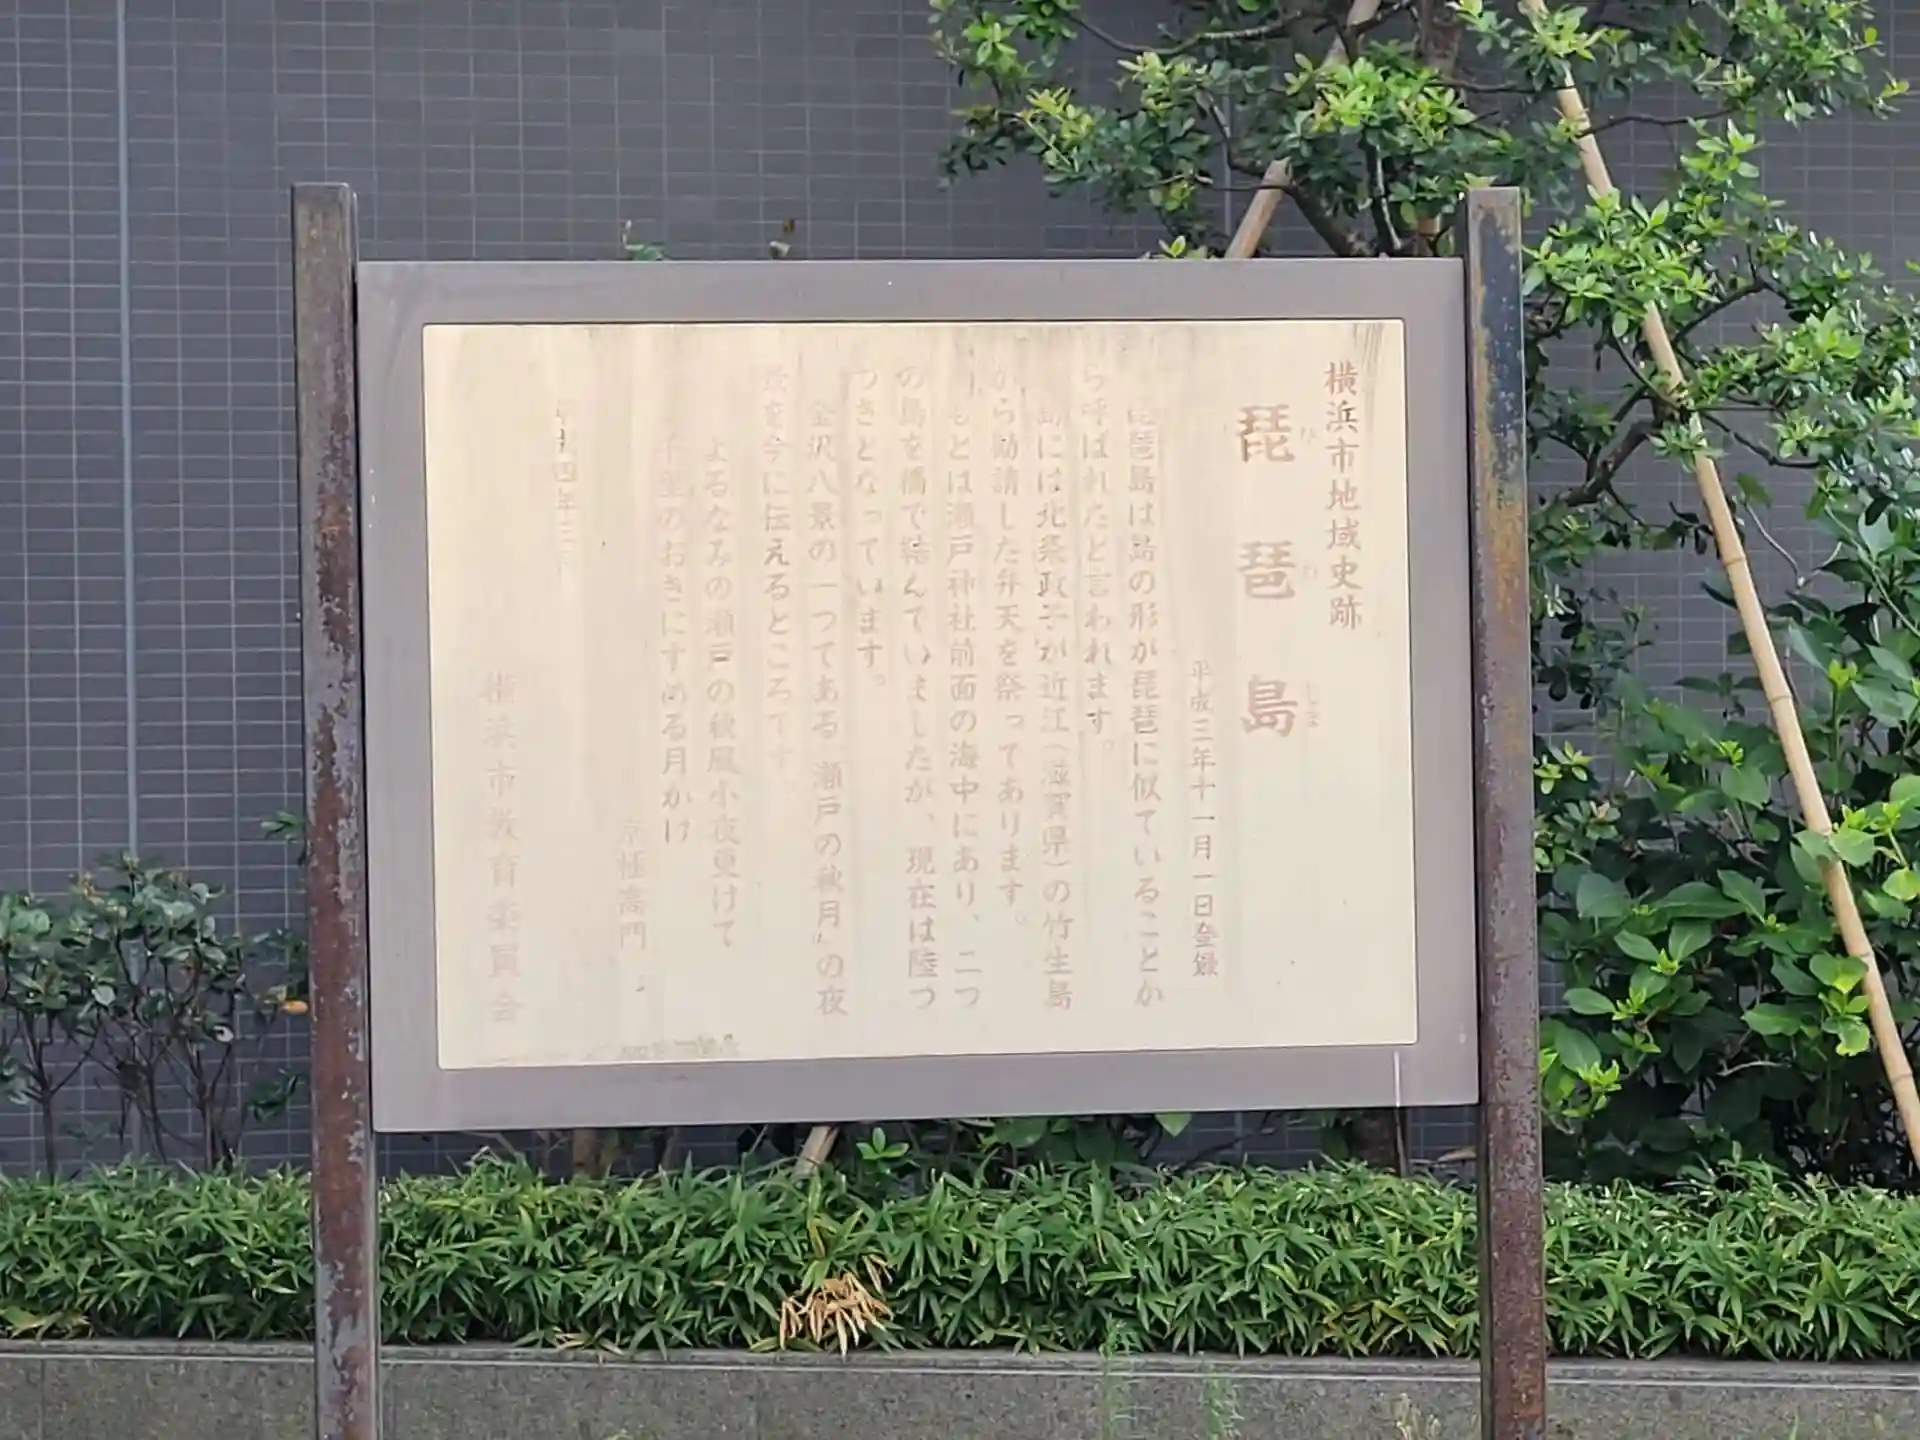 横浜市地域史跡
琵琶島
びわしま
平成三年十一月一日登録
琵琶島は島の形が琵琶に似ていることか
ら呼ばれたと言われます。
島には北条政子が近江（滋賀県）の竹生島
から勧請した弁天を祭ってあります。
もとは瀬戸神社前面の海中にあり、二つ
の島を橋で結んでいましたが、現在は陸つ
づきとなっています。
金沢八景の一つである「瀬戸の秋月」の夜
景を今に伝えるところです。
よるなみの瀬戸の秋風小夜更けて
千里のおきにすめる月かげ
京極高門
平成四年三月
横浜市教育委員会